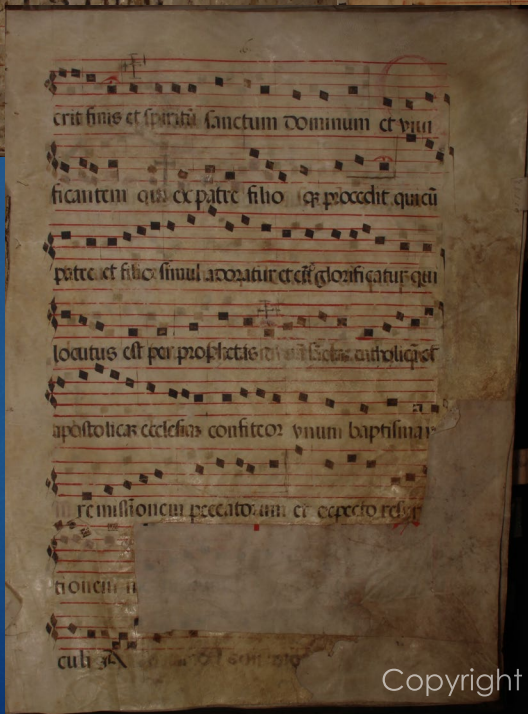 erit finis et spiritū sanctum dominum et viui
ficantem qui ex patre filio qȝ procedit qui cū
patre et filio simul adoratur et glorificatur qui
locutus est per prophetas
apostolicaȝ ecclesiaȝ confiteor vnum baptisma
remissionem peccatorum et expecto
tionem
culi
Copyright